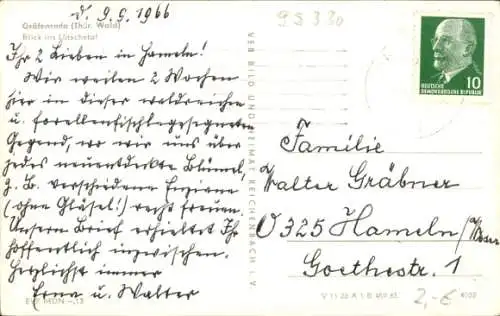 d. 9.9.1966
9 S 330
Gräfenroda (Thür. Wald)
Blick ins Lütschetal
Ihr 2 Lieben in Hameln!
Wir weilen 2 Wochen
hier in dieser waldreichen
u. forellenfischlegesegneten
Gegend, wo wir uns über
jedes neuentdeckte Blümel,
z. B. verschiedene Enziane
(ohne Gläsel!) recht freuen.
Unseren Brief erhieltet Ihr
hoffentlich inzwischen.
Herzlichst immer
Erna u. Walter
EVP MDN -,15
VEB BILD UND HEIMAT REICHENBACH I. V.
10
DEUTSCHE
DEMOKRATISCHE REPUBLIK
Familie
Walter Gräbner
D 325 Hameln/Weser
Goethestr. 1
V 11 28 A 1 B
2,- €